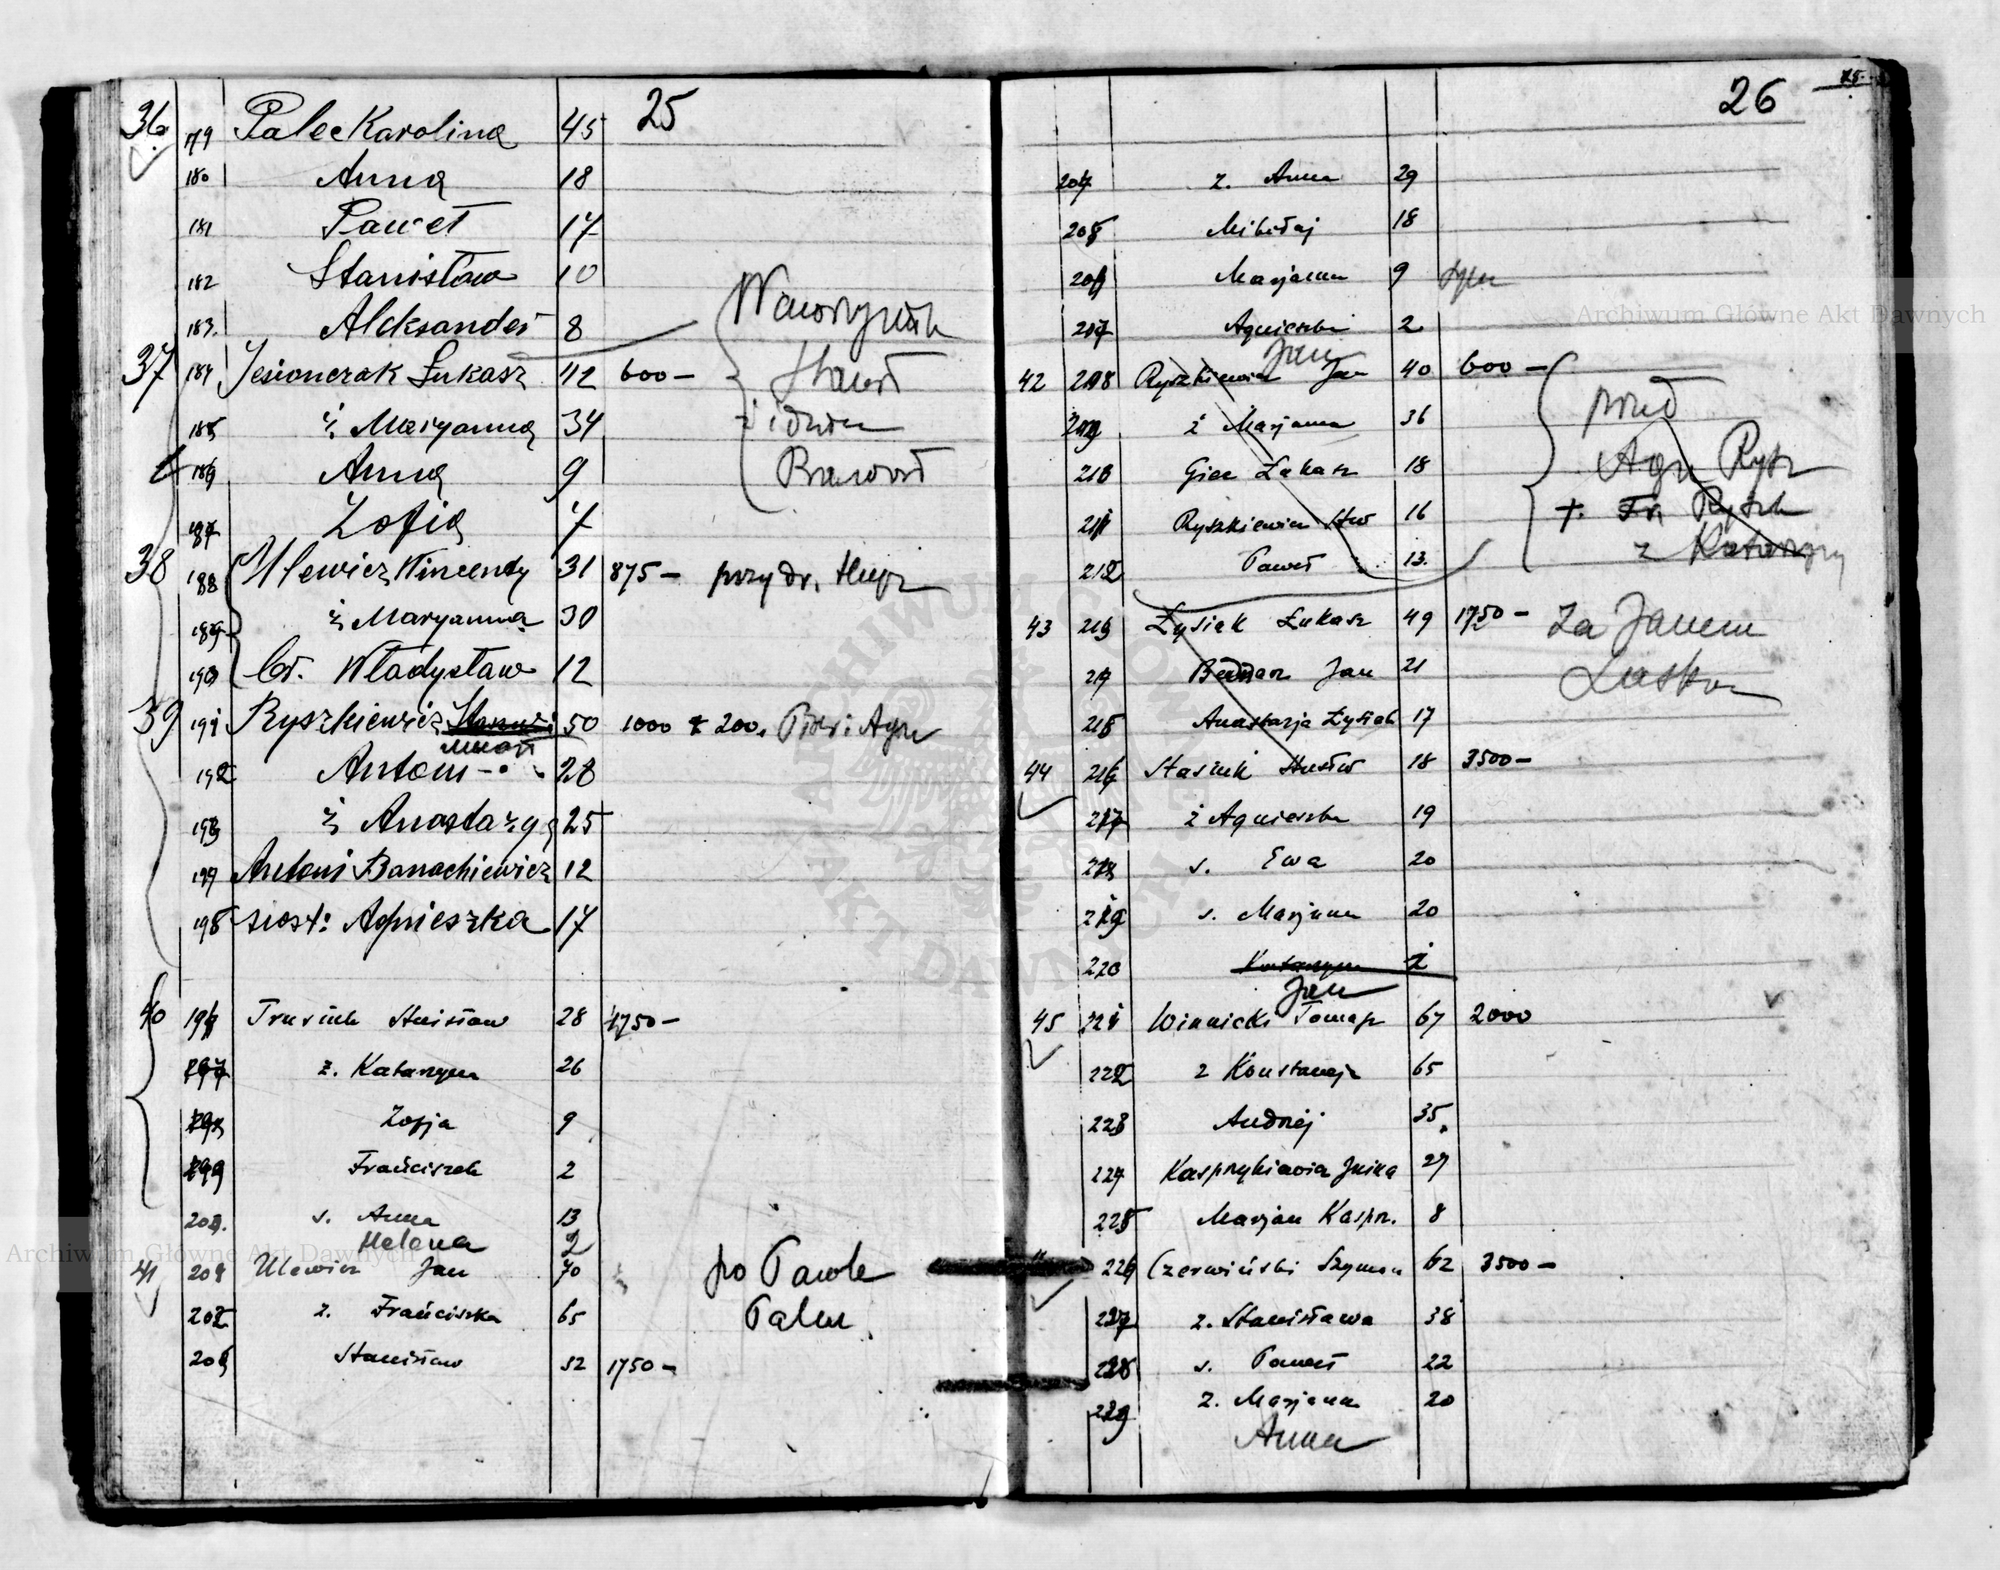 25
36 179 Palec Karolina 45
180 Anna 18
181 Paweł 17
182 Stanisław 10
183. Aleksander 8
37 184 Jesionczak Łukasz 42 600 —
185 ż Maryanna 34
186 Anna 9
187 Zofia 7
38 188 Ulewicz Wincenty 31 875 — przy dr.
189 ż Maryanna 30
190 Cór. Władysław 12
39 191 Ryszkiewicz 50 1000 200.
192 Antoni 28
193 ż Anastazya 25
194 Antoni Banachiewicz 12
195 siost: Agnieszka 17
40 196 Trusiuk Stanisław 28 1750 —
197 ż. Katarzyna 26
198 Zofja 9
199 Franciszek 2
200. s. Anna 13
Helena 2
41 201 Ulewicz Jan 70 po Pawle
202 ż. Franciszka 65
203 Stanisław 32 1750 —
26
75.
204 ż. Anna 29
205 Mikołaj 18
206 Marjanna 9
207 Agnieszka 2
Jan
42 208 Ryszkiewicz Jan 40 600 —
209 ż Marjanna 36
210 Giec Łukasz 18
211 Ryszkiewicz Stw 16
z Katarzyny
212 Paweł 13.
43 213 Łysiak Łukasz 49 1750 — Za Janem
214 Bednarz Jan 21
215 Anastazja Łysiak 17
44 216 Stasiuk 18 3500 —
217 ż Agnieszka 19
218 s. Ewa 20
219 s. Marjanna 20
220 Katarzyna
Jan
45 221 Winnicki Tomasz 67 2000
222 ż Konstancja 65
223 Andrzej 35.
224 27
225 Marjan Kaspr. 8
226 Czerwiński Szymon 62 3500 —
227 ż. Stanisława 38
228 s. Paweł 22
229 ż. Marjanna 20
Anna
Archiwum Główne Akt Dawnych
Archiwum Główne Akt Dawnych
ARCHIWUM GŁÓWNE AKT DAWNYCH